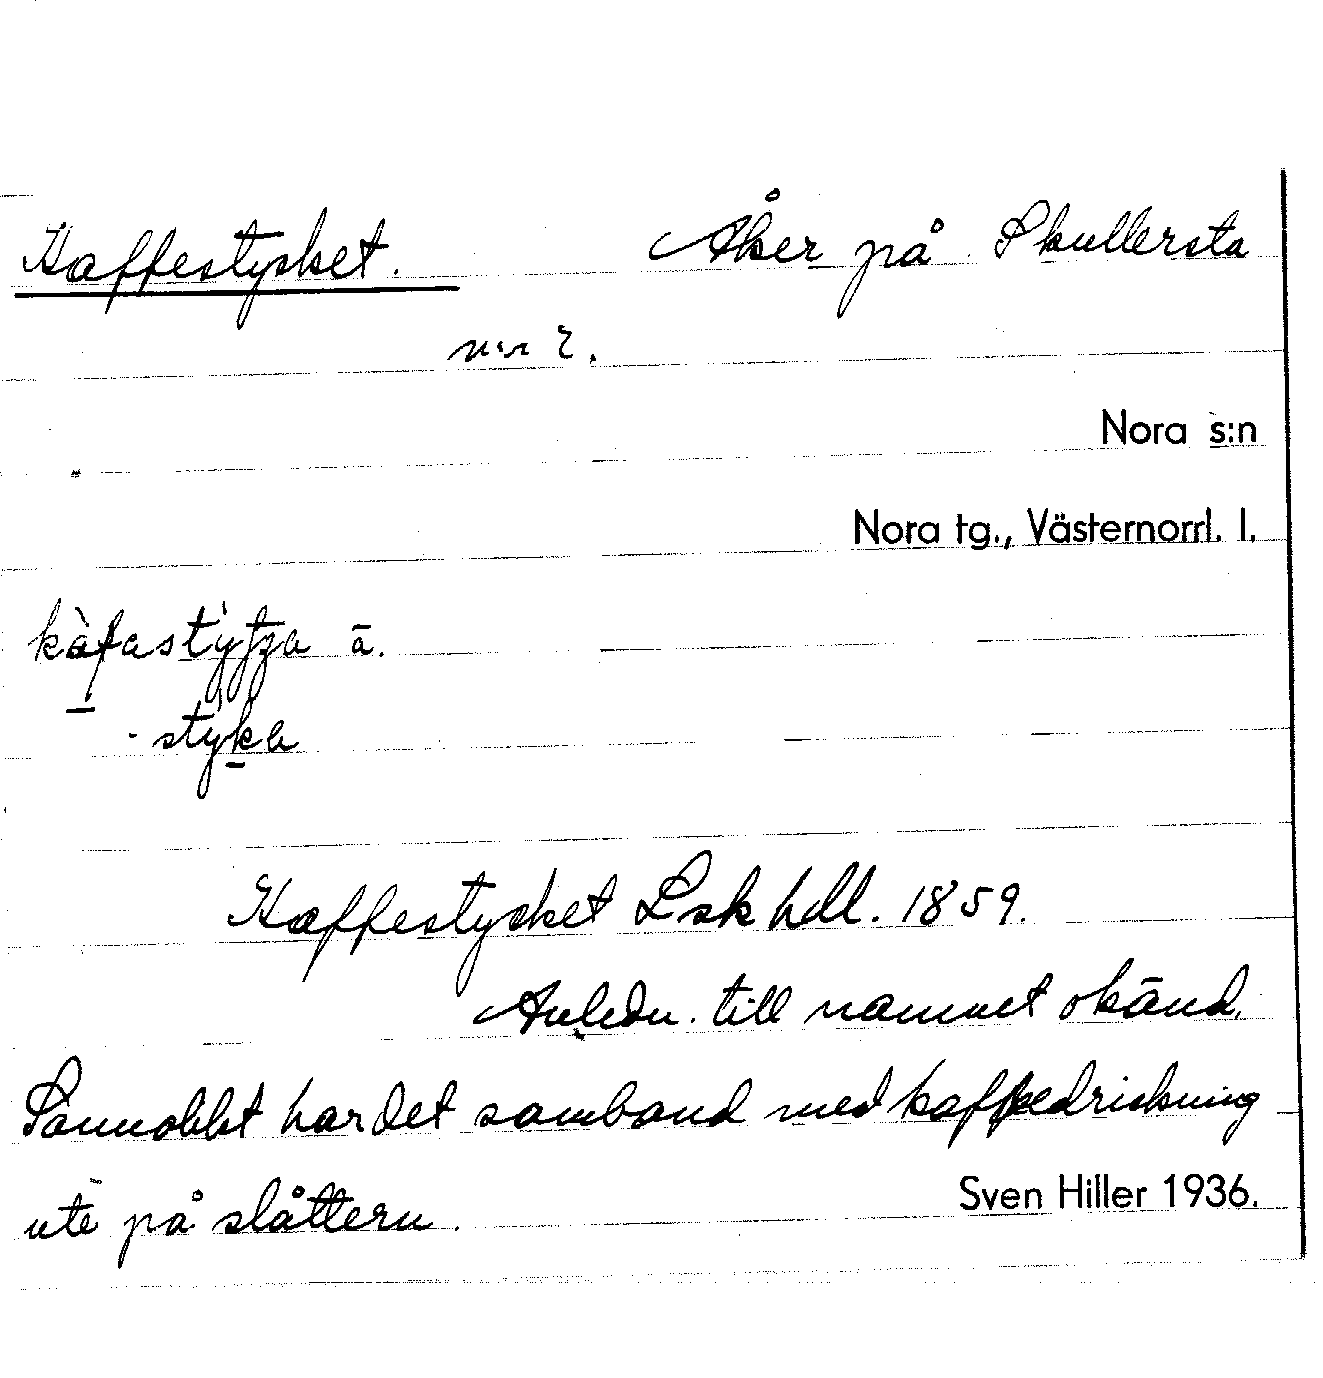 Kaffestycket. Åker på Skullersta
n:r 2.
Nora s:n
Nora tg., Västernorrl. l.
ā.
- styka
Kaffestycket Lsk hdl. 1859.
Anledn. till namnet okänd.
Sannolikt har det samband med kaffedrickning
ute på slåttern.
Sven Hiller 1936.